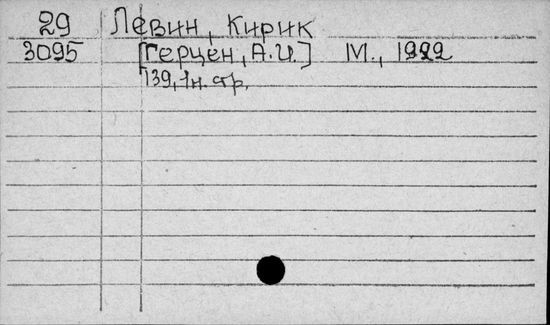 29 Левин, Кирик
3095 [Герцен, А.И.] М., 1922
139, 1н. стр.